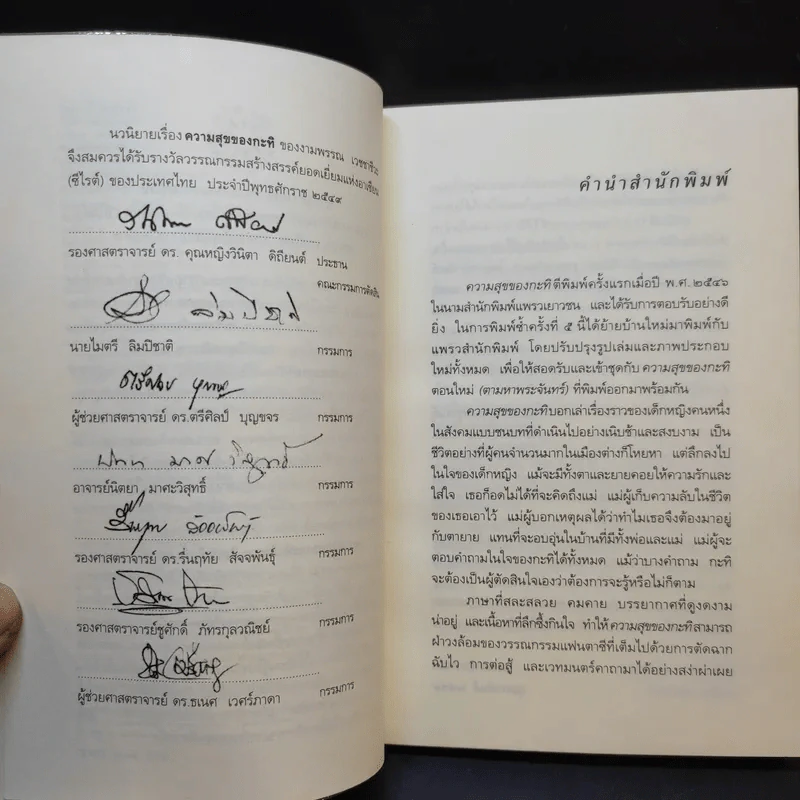 นวนิยายเรื่อง ความสุขของกะทิ ของงามพรรณ เวชชาชีวะ
จึงสมควรได้รับรางวัลวรรณกรรมสร้างสรรค์ยอดเยี่ยมแห่งอาเซียน
(ซีไรต์) ของประเทศไทย ประจำปีพุทธศักราช ๒๕๔๙
รองศาสตราจารย์ ดร. คุณหญิงวินิตา ดิถียนต์ ประธาน
คณะกรรมการตัดสิน
นายไมตรี ลิมปิชาติ กรรมการ
ผู้ช่วยศาสตราจารย์ ดร.ตรีศิลป์ บุญขจร กรรมการ
อาจารย์นิตยา มาศะวิสุทธิ์ กรรมการ
รองศาสตราจารย์ ดร.รื่นฤทัย สัจจพันธุ์ กรรมการ
รองศาสตราจารย์ชูศักดิ์ ภัทรกุลวณิชย์ กรรมการ
ผู้ช่วยศาสตราจารย์ ดร.ธเนศ เวศร์ภาดา กรรมการ
คำนำสำนักพิมพ์
ความสุขของกะทิ ตีพิมพ์ครั้งแรกเมื่อปี พ.ศ. ๒๕๔๖
ในนามสำนักพิมพ์แพรวเยาวชน และได้รับการตอบรับอย่างดี
ยิ่ง ในการพิมพ์ซ้ำครั้งที่ ๕ นี้ได้ย้ายบ้านใหม่มาพิมพ์กับ
แพรวสำนักพิมพ์ โดยปรับปรุงรูปเล่มและภาพประกอบ
ใหม่ทั้งหมด เพื่อให้สอดรับและเข้าชุดกับ ความสุขของกะทิ
ตอนใหม่ (ตามหาพระจันทร์) ที่พิมพ์ออกมาพร้อมกัน
ความสุขของกะทิบอกเล่าเรื่องราวของเด็กหญิงคนหนึ่ง
ในสังคมแบบชนบทที่ดำเนินไปอย่างเนิบช้าและสงบงาม เป็น
ชีวิตอย่างที่ผู้คนจำนวนมากในเมืองต่างก็โหยหา แต่ลึกลงไป
ในใจของเด็กหญิง แม้จะมีทั้งตาและยายคอยให้ความรักและ
ใส่ใจ เธอก็อดไม่ได้ที่จะคิดถึงแม่ แม่ผู้เก็บความลับในชีวิต
ของเธอเอาไว้ แม่ผู้บอกเหตุผลได้ว่าทำไมเธอจึงต้องมาอยู่
กับตายาย แทนที่จะอบอุ่นในบ้านที่มีทั้งพ่อและแม่ แม่ผู้จะ
ตอบคำถามในใจของกะทิได้ทั้งหมด แม้ว่าบางคำถาม กะทิ
จะต้องเป็นผู้ตัดสินใจเองว่าต้องการจะรู้หรือไม่ก็ตาม
ภาษาที่สละสลวย คมคาย บรรยากาศที่ดูงดงาม
น่าอยู่ และเนื้อหาที่ลึกซึ้งกินใจ ทำให้ความสุขของกะทิสามารถ
ฝ่าวงล้อมของวรรณกรรมแฟนตาซีที่เต็มไปด้วยการตัดฉาก
ฉับไว การต่อสู้ และเวทมนตร์คาถามาได้อย่างสง่าผ่าเผย